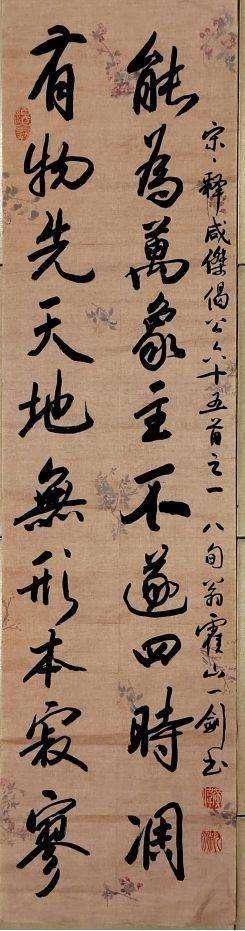 有物先天地無形本寂寥
能為萬象主不遂四時凋
宋、释咸傑偈公六十五首之一八旬翁霍山一劍书